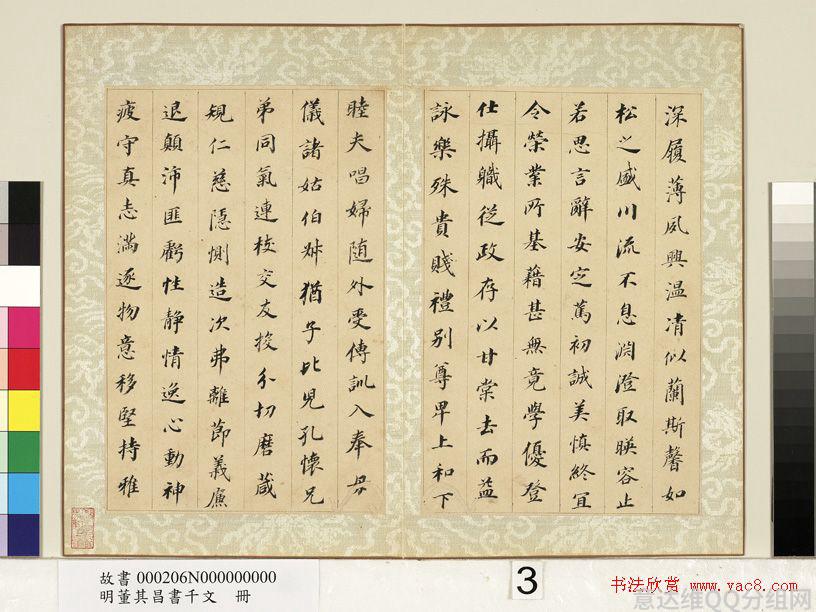 深履薄夙興温凊似蘭斯馨如
松之盛川流不息淵澄取暎容止
若思言辭安定篤初誠美慎終宜
令榮業所基藉甚無竟學優登
仕攝職從政存以甘棠去而益
詠樂殊貴賤禮別尊卑上和下
睦夫唱婦随外受傅訓入奉母
儀諸姑伯叔猶子比兒孔懷兄
弟同氣連枝交友投分切磨葴
規仁慈隱惻造次弗離節義廉
退顛沛匪虧性静情逸心動神
疲守真志滿逐物意移堅持雅
故書 000206N000000000
明董其昌書千文　冊
3
书法欣赏 www.yac8.com
意达维QQ分组网